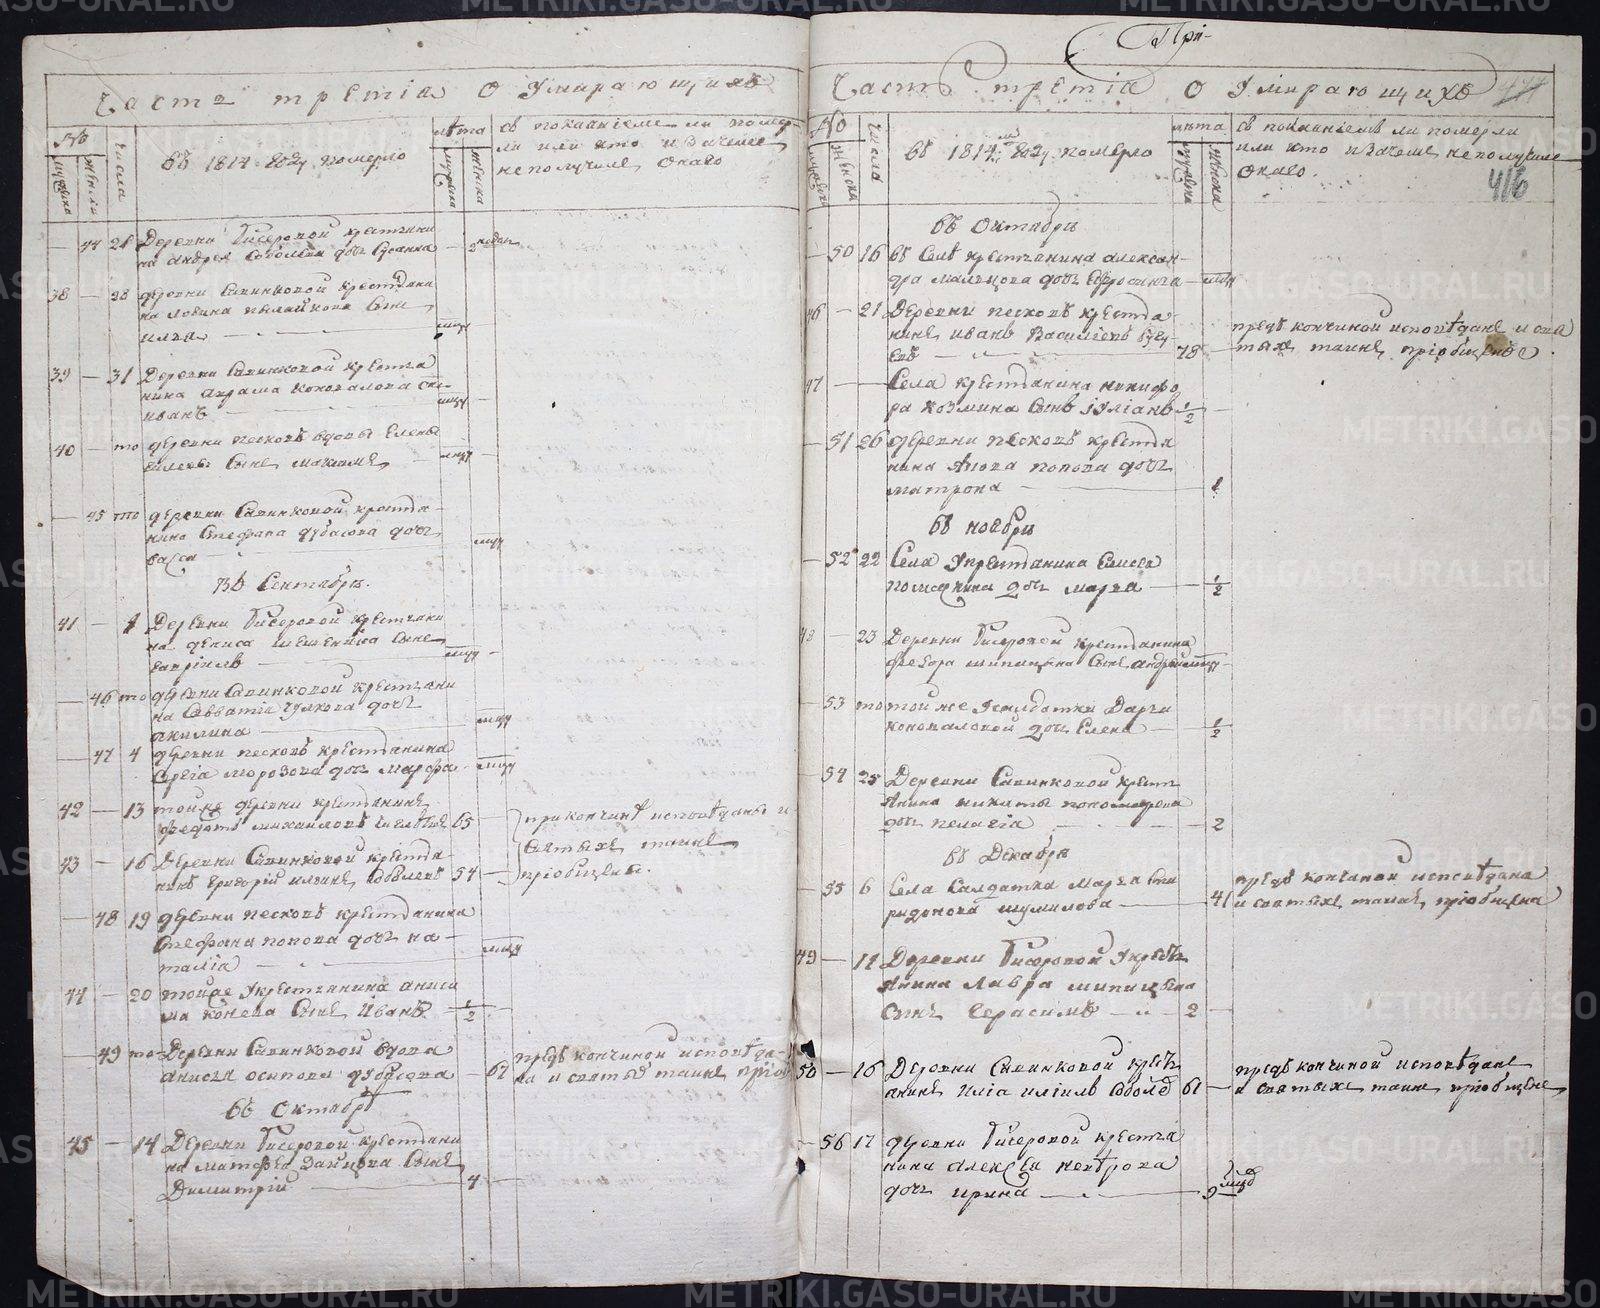 Часть третіа О Умирающихъ
№
мужеска
женска
числа
въ 1814 году померло
лѣта
мужеска
женска
съ покаяніемъ ли помер-
ли или кто и зачемъ
не получилъ онаго
44 28 Деревни Бисеровой крестьяни
на Андрея Соболева дочь Сусанна 2 недел
38 28 деревни Савинковой крестьяни
на сынъ
Илья мцу
39 31 Деревни Савинковой крестья
нина Абрама Коновалова сы
Иванъ мцу
40 то деревни Песковъ вдовы Елены
сынъ Максимъ мцу
45 то деревни Савинковой крестья
нина Стефана Дубасова дочь
Васса мцу
Въ Сентябрѣ.
41 1 Деревни Бисеровой крестьяни
на Дениса сынъ
Гавріилъ мцу
46 то деревни Савинковой крестьяни
на Савватіа Чулкова дочь
Акилина мцу
47 4 деревни Песковъ крестьянина
Сергіа Морозова дочь Марфа мцу
42 13 тойже деревни крестьянинъ
Федотъ Михаиловъ 65 при кончинѣ исповѣданы и
святыхъ таинъ
43 16 Деревни Савинковой крестья
нинъ Григорій Ильинъ Соболевъ 54 пріобщены.
48 19 деревни Песковъ крестьянина
Стефана Попова дочь На-
таліа мцу
44 20 тойже крестьянина Аниси
ма Конева сынъ Иванъ 1/2
49 то Деревни Савинковой вдова
Анисья Осипова Дубасова 67 предъ кончиной исповѣда-
на и святыхъ таинъ пріоб
въ Октябрѣ
45 14 Деревни Бисеровой крестьяни
на Матфеа Зайцова сынъ
Димитрій 4
При-
Часть третіа О Умирающихъ
477
416
№
мужеска
женска
числа
въ 1814м году померло
лѣта
мужеска
женска
съ покаяніемъ ли померли
или кто и зачемъ не получилъ
онаго.
въ Октябрѣ
50 16 въ Селѣ крестьянина Алексан-
дра Мальцова дочь Ефросиніа мцу
46 21 Деревни Песковъ крестья
нинъ Иванъ Василіевъ
78 предъ кончиной исповѣданъ и свя
тыхъ таинъ пріобщенъ.
47 Села крестьянина Никифо
ра Козмина сынъ Іуліанъ 1/2
51 26 деревни Песковъ крестья
нина Якова Попова дочь
Матрона 1
въ Ноябрѣ
52 22 Села крестьянина Елисея
дочь Марѳа 1/2
48 23 Деревни Бисеровой крестьянина
Федора Шипицына сынъ Андрей мцу
53 то той же солдатки Дарьи
Коноваловой дочь Елена 1/2
54 25 Деревни Савинковой крест
янина Никиты Пономарева
дочь Пелагіа 2
въ Декабрѣ
55 6 Села Салдатка Марѳа Спи
ридонова Шумилова 41 предъ кончиной исповѣдана
и святыхъ таинъ пріобщена
49 11 Деревни Бисеровой крест
янина Лавра Шипицына
сынъ Герасимъ 2
50 16 Деревни Савинковой крест
янинъ Иліа Соболе 61 предъ кончиной исповѣданъ
и святыхъ таинъ пріобщенъ
56 17 деревни Бисеровой крестья
нина Алексѣя Петрова
дочь Ирина 9 мцѣ
METRIKI.GASO-URAL.RU